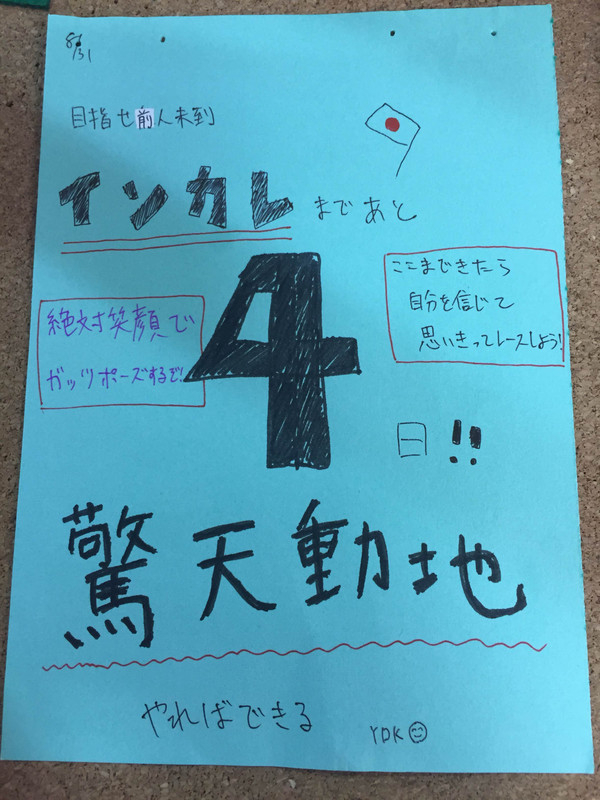 8/31
目指せ前人未到
インカレまであと
4
日!!
絶対笑顔で
ガッツポーズするぞ!
ここまできたら
自分を信じて
思いきってレースしよう!
驚天動地
やればできる
YDK